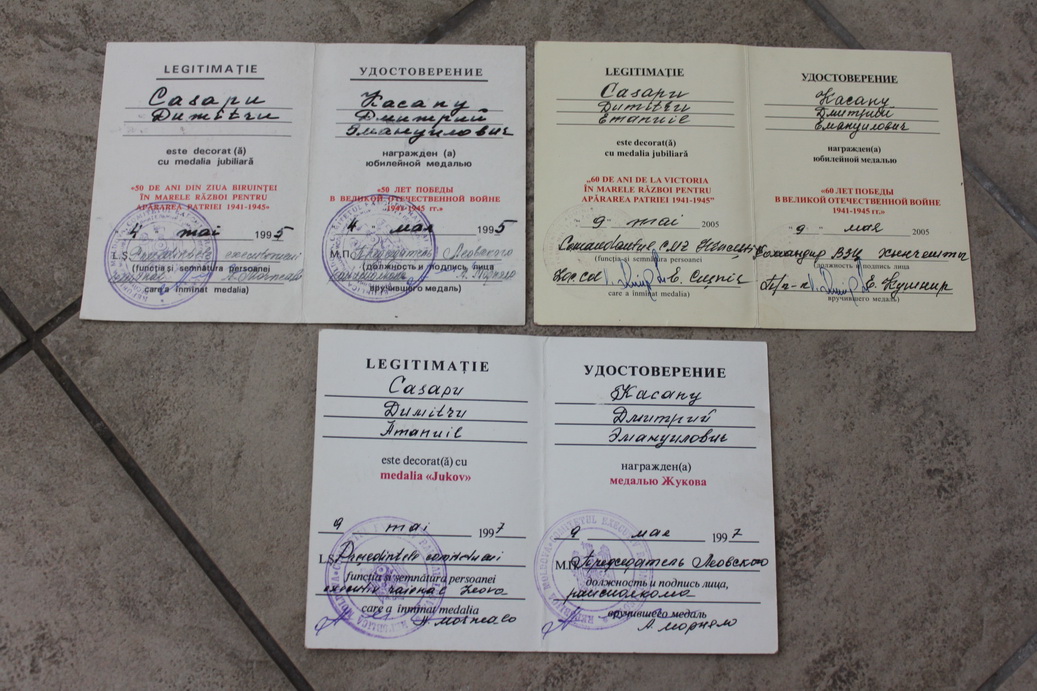 LEGITIMAȚIE
Casapu
Dumitru
este decorat(ă)
cu medalia jubiliară
«50 DE ANI DIN ZIUA BIRUINȚEI
ÎN MARELE RĂZBOI PENTRU
APĂRAREA PATRIEI 1941-1945»
4 mai 1995
L.S.
(funcția și semnătura persoanei
care a înmînat medalia)
УДОСТОВЕРЕНИЕ
Касапу
Дмитрий
Эмануилович
награжден (а)
юбилейной медалью
«50 ЛЕТ ПОБЕДЫ
В ВЕЛИКОЙ ОТЕЧЕСТВЕННОЙ ВОЙНЕ
1941-1945 гг.»
4 мая 1995
М.П. Председатель Леовского
(должность и подпись лица
вручившего медаль)
LEGITIMAȚIE
Casapu
Dumitru
Emanuil
este decorat(ă)
cu medalia jubiliară
„60 DE ANI DE LA VICTORIA
ÎN MARELE RĂZBOI PENTRU
APĂRAREA PATRIEI 1941-1945”
"9" mai 2005
Comandantul
(funcția și semnătura persoanei
care a înmînat medalia)
УДОСТОВЕРЕНИЕ
Касапу
Дмитрий
Емануилович
награжден(а)
юбилейной медалью
«60 ЛЕТ ПОБЕДЫ
В ВЕЛИКОЙ ОТЕЧЕСТВЕННОЙ ВОЙНЕ
1941-1945 гг.»
"9" мая 2005
Командир
(должность и подпись лица
Е. Кушнир
вручившего медаль)
LEGITIMAȚIE
Casapu
Dumitru
Amanuil
este decorat(ă) cu
medalia «Jukov»
9 mai 1997
L.S. Președintele comitetului
funcția și semnătura persoanei
executiv raional Leova
care a înmînat medalia
УДОСТОВЕРЕНИЕ
Касапу
Дмитрий
Эмануилович
награжден(а)
медалью Жукова
9 мая 1997
М.П. Председатель Леовского
должность и подпись лица,
райисполкома
вручившего медаль